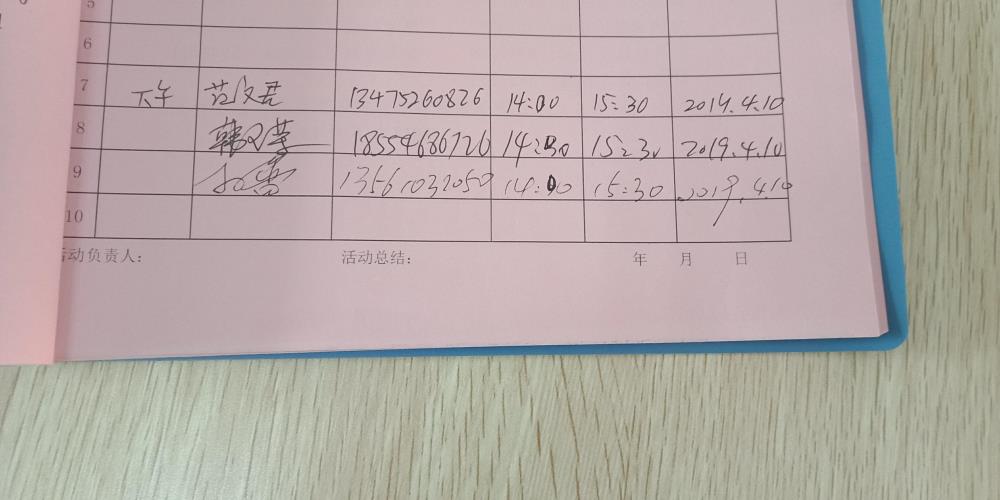 5
6
7 下午 范文君 13475260826 14:00 15:30 2019.4.10
8 18554686726 14:30 15:30 2019.4.10
9 13561032050 14:00 15:30 2019.4.10
10
活动负责人： 活动总结： 年 月 日